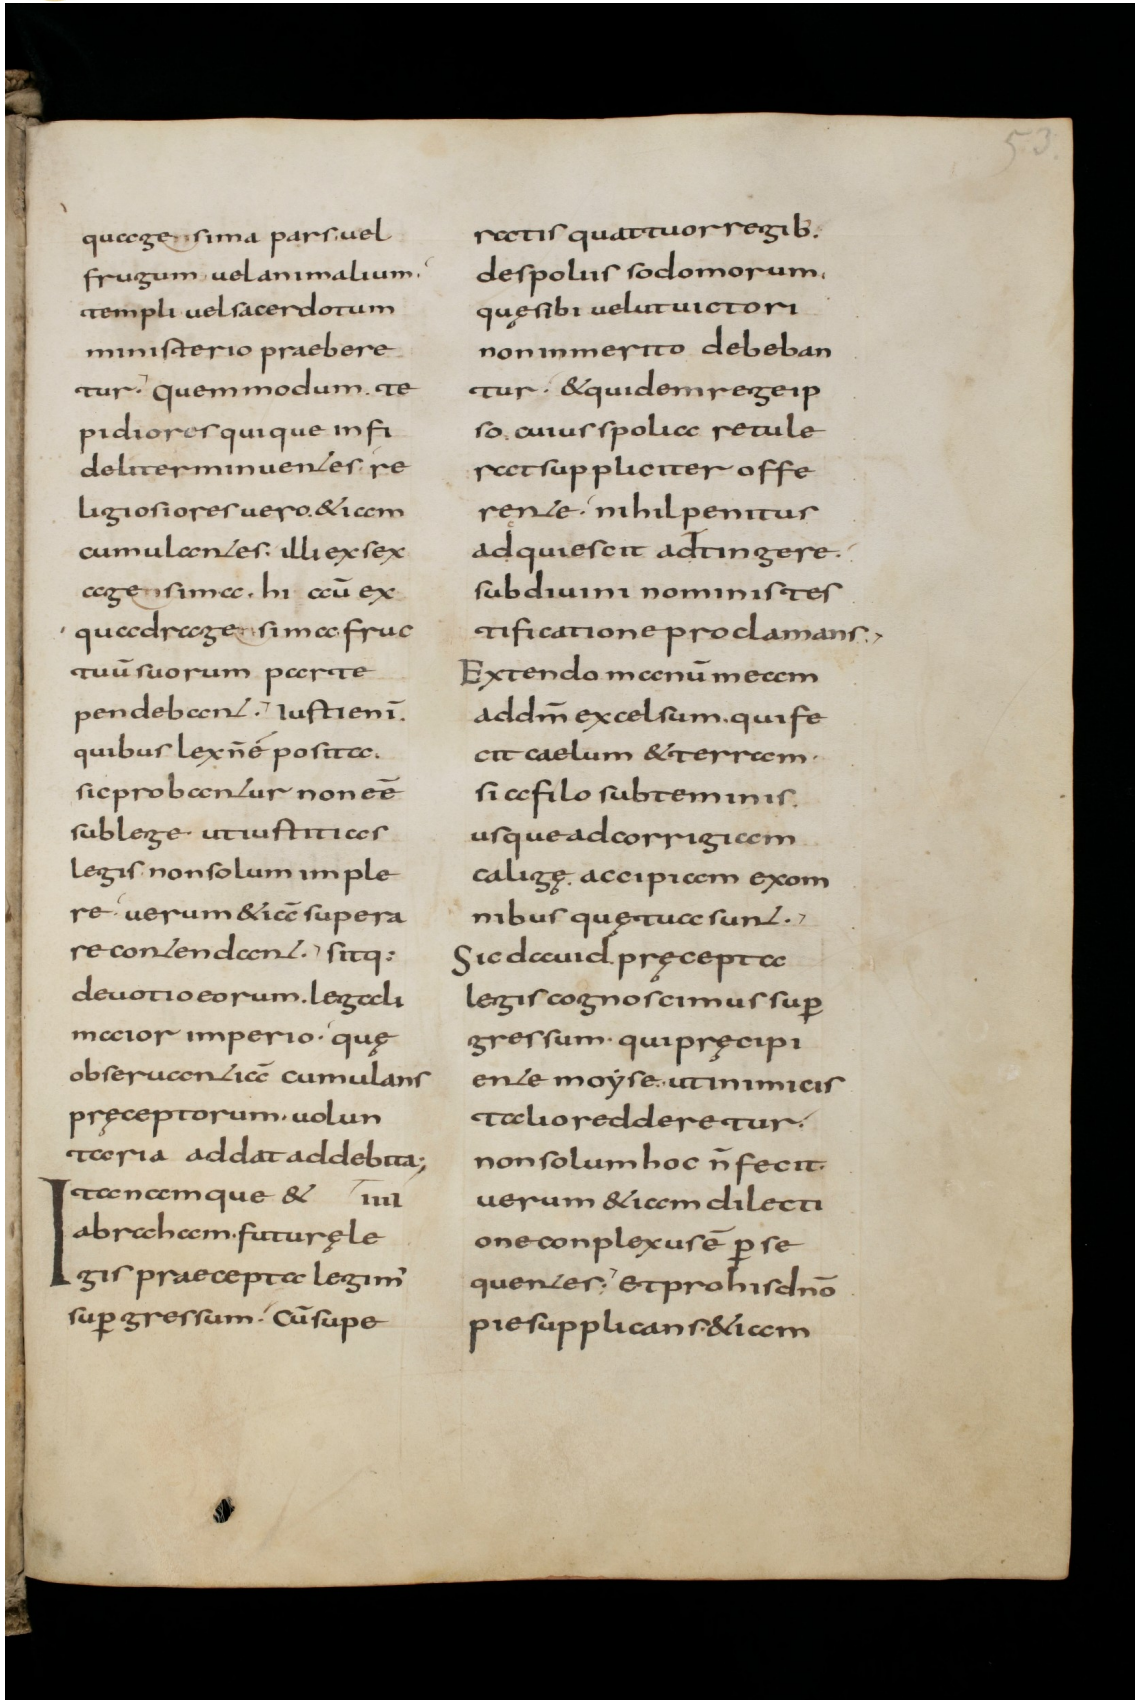 53.
quagensima pars uel
frugum uel animalium.
templi uel sacerdotum
ministerio praebere
tur. Quem modum. te
pidiores quique infi
deliter minuentes. re
ligiosiores uero. & iam
cumulantes. illi ex sex
agensima. hi aū ex
quadragensima fruc
tuū suorum parte
pendebant. Iusti eni.̄
quibus lex n̄ e positа.
sic probantur non eē
sub lege. ut iustitias
legis non solum imple
re. uerum & iā supera
re contendant. sitq:
deuotio eorum. legali
maior imperio. quę
obseruantiā cumulans
pręceptorum. uolun
taria addat ad debita;
Itannamque & īııı
abraham. futurę le
gis praecepta legim'
suꝑgressum. Cū supe
ratis quattuor regib.
de spoliis sodomorum.
quę sibi uelut uictori
non inmerito debeban
tur. & quidem rege ip
so. cuius spolia retule
rat suppliciter offe
rente. nihil penitus
adquiescit adtingere.
sub diuini nominis tes
tificatione proclamans.
Extendo manū meam
ad dm̄ excelsum. qui fe
cit caelum & terram.
si a filo subteminis.
usque ad corrigiam
caligę. accipiam ex om
nibus quę tua sunt.
Sic dauid. pręcepta
legis cognoscimus suꝑ
gressum. qui pręcipi
ente moẏse. ut inimicis
talio redderetur.
non solum hoc n̄ fecit.
uerum & iam dilecti
one conplexus ē ꝑse
quentes. Et pro his dn̄o
pie supplicans. & iam